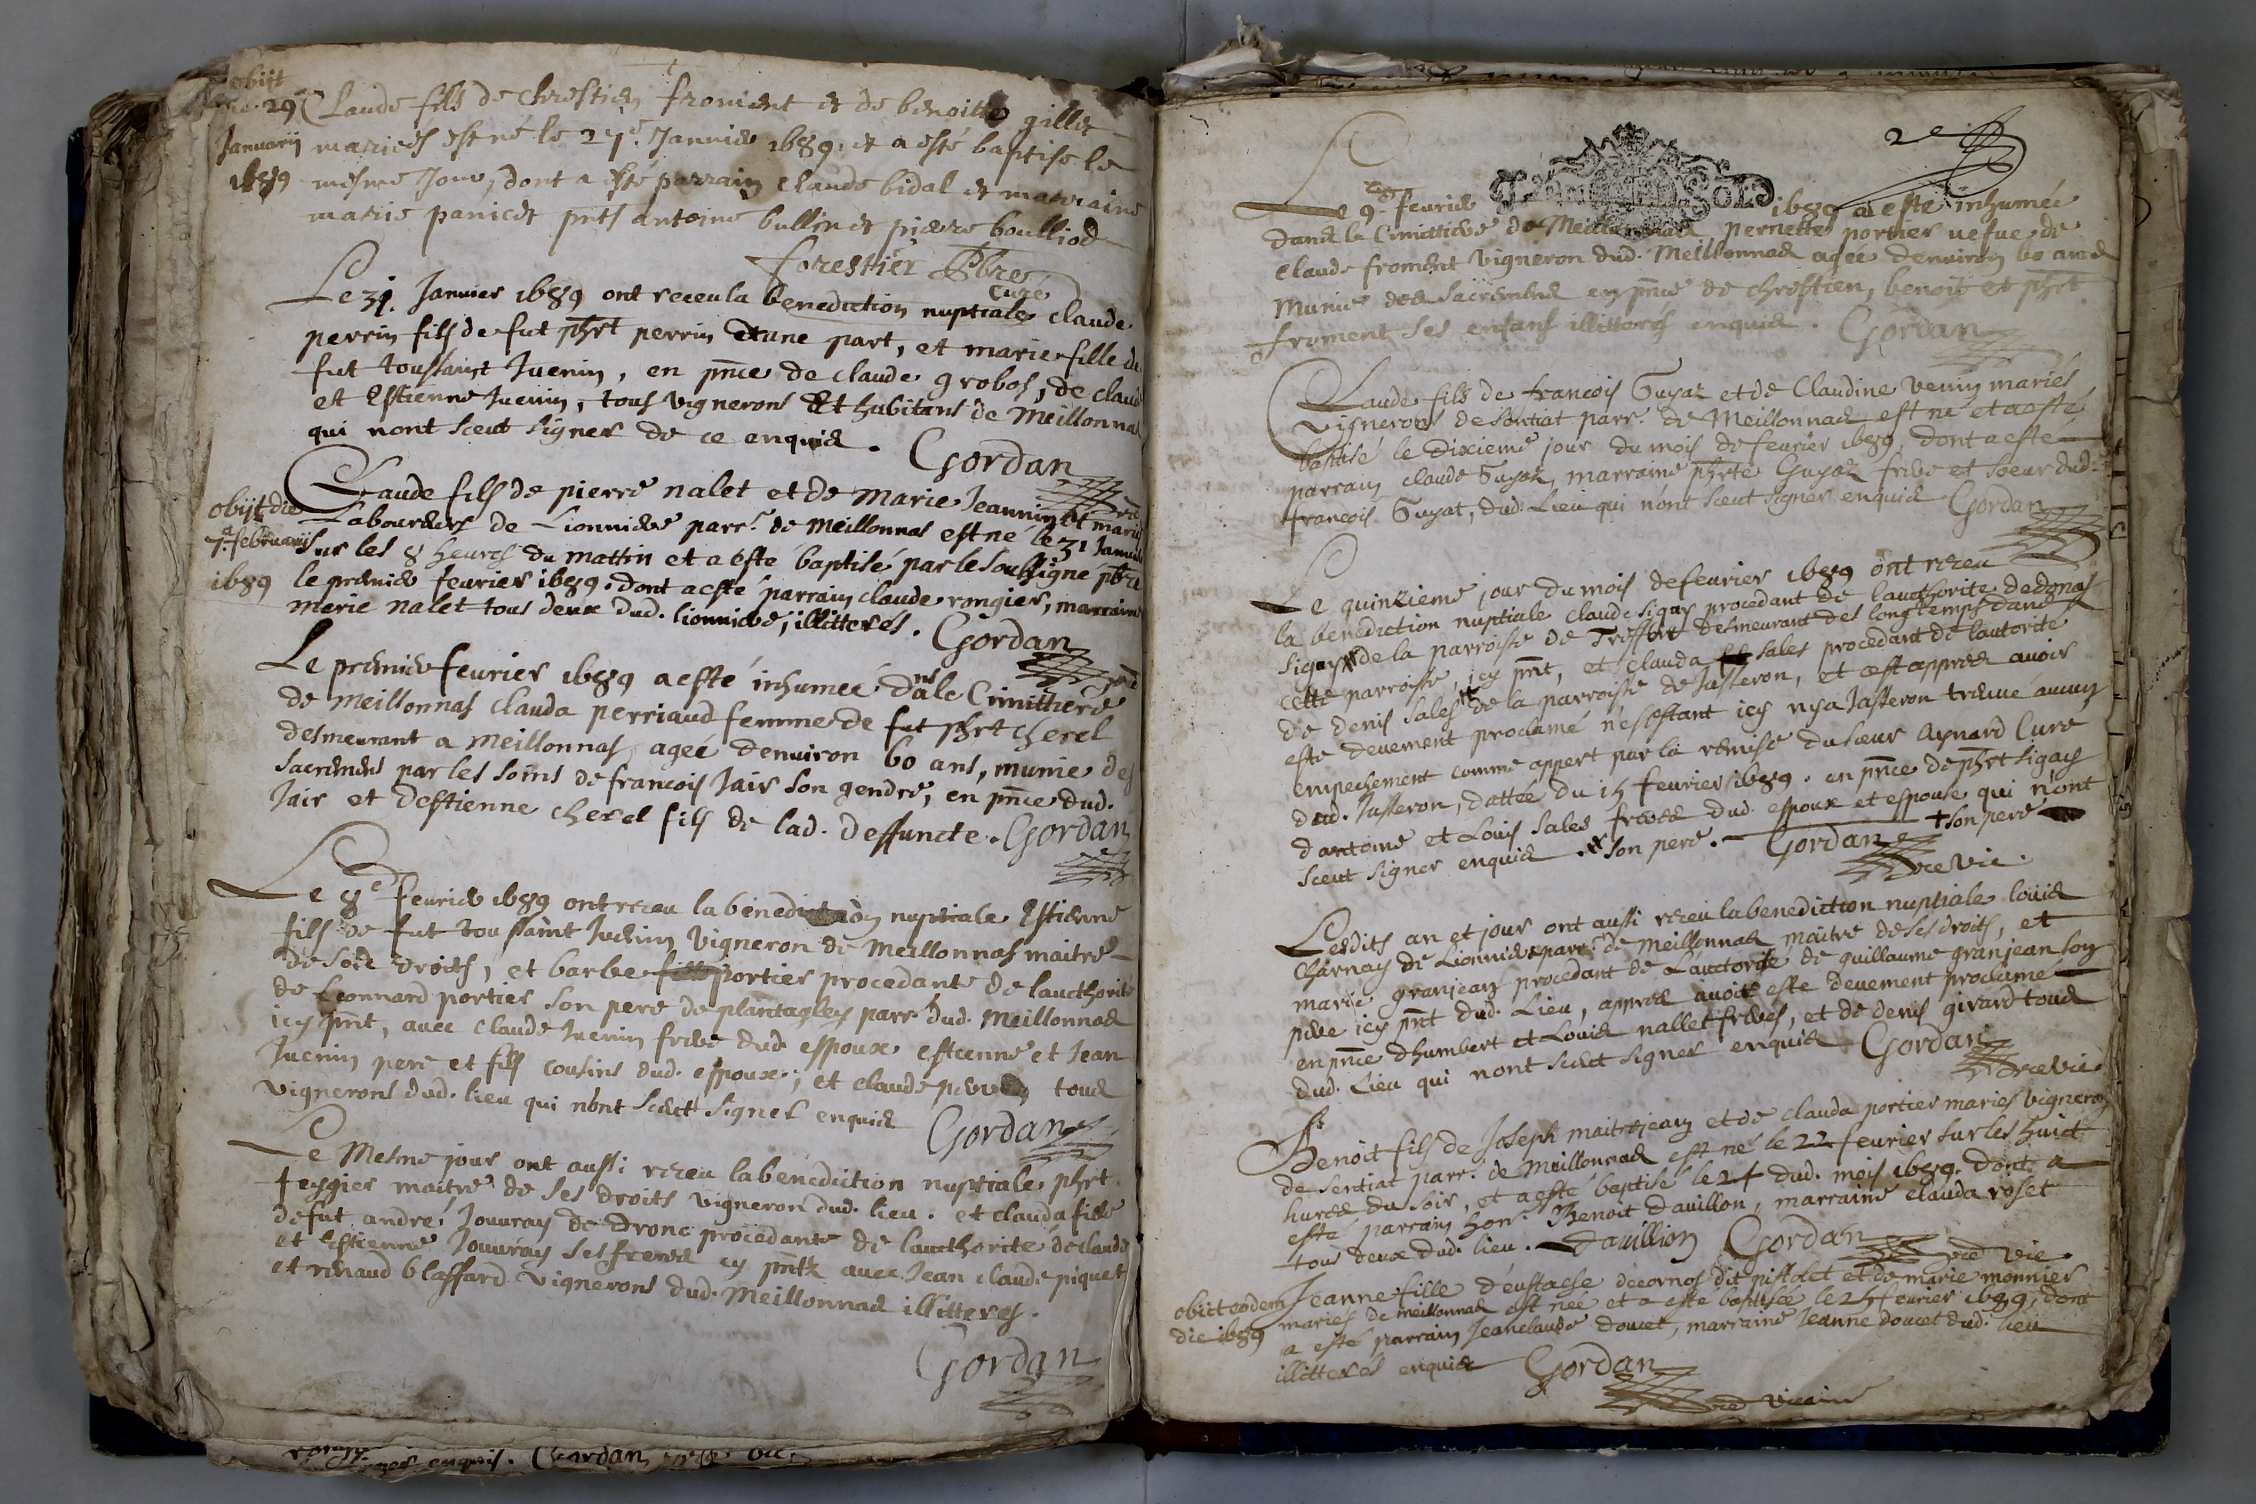 obijt
29
Januarij
1689
Claude fils de Chrestien froment et de benoitte gillet
mariés est né le 27e Janvier 1689. et a esté baptise le
mesme Jour, dont a esté parrain Claude bidal et marraine
marie panicet pnts antoine bullin et pierre boulliod
forestier Pbre
Curé
Le 31. Janvier 1689 ont receu la benediction nuptiale Claude
perrin fils de fut phrt perrin d'une part, et marie fille de
fut toussainct Juenin, en pnce de Claude grobos, de claud
et Estienne Juenin, tous vignerons Et habitans de Meillonnas
qui nont sceut signer de ce enquis. Gordan
obijt die
7a. februarij
1689
Claude fils de pierre nalet et de Marie Jeannin mariés
Laboureurs de Lionniere parr. de Meillonnas est né le 31 Janvier
sur les 8 heures du mattin et a esté baptisé par le soussigné pbre
le premier fevrier 1689. dont a esté parrain claude rongier, marraine
marie nalet tous deux dud. lionniere, illitteres. Gordan
Le premier fevrier 1689 a esté inhumée dans le Cimittiere
de Meillonnas Clauda perriaud femme de fut phrt cherel
desmeurant a Meillonnas, agée denviron 60 ans, munie des
sacremens par les soins de francois Jair son gendre, en pnce dud.
Jair et destienne cherel fils de lad. deffuncte. Gordan
Le 8e fevrier 1689 ont receu la benediction nuptiale Estienne
fils de fut toussaint Juenin vigneron de Meillonnas maitre
de ses droits, et barbe portier procedante de laucthorité
de Leonnard portier son pere de plantagley parr. dud. Meillonnas
icy pnt, avec Claude Juenin frere dud espoux, estienne et Jean
Juenin pere et fils cousins dud. espoux, et claude tous
vignerons dud. lieu qui nont sceut signer enquis Gordan
Le Mesme jour ont aussi receu la benediction nuptiale phrt.
feygier maitre de ses droits vigneron dud. lieu. et clauda fille
de fut andré Jouvray de Dronc procedante de laucthorité de Claude
et Estienne Jouvray ses freres cy pnts avec Jean claude piquet
et renaud blassard vignerons dud. Meillonnas illitteres.
Gordan
enquis. Gordan
2e
SOLD
Le 9e fevrier 1689 a esté inhumée
dans le Cimittiere de Meillonnas pernette portier vefue de
Claude froment vigneron dud. Meillonnas agée denviron 60 ans
Munie des sacremens en pnce de chrestien, benoit et phrt
froment ses enfans illitterés enquis. Gordan
Claude fils de francois Guyat et de Claudine venin mariés
vignerons de sentiat parr. de Meillonnas est né et a esté
baptisé le dixieme jour du mois de fevrier 1689, dont a esté
parrain claude Guyat, marraine phrte Guyat frere et soeur dud.
francois Guyat, dud. Lieu qui n'ont sceut signer enquis Gordan
Le quinzieme jour du mois de fevrier 1689 ont receu
la benediction nuptiale Claude sigay procedant de laucthorité de donas
sigay de la parroisse de Treffort desmeurant des longtemps dans
cette parroisse, icy pnt, et Clauda sales procedant de lautorité
de denis sales de la parroisse de Jasseron, et cest apprés avoir
esté deuement proclamé n'esstant icy ny a Jasseron treuué aucun
empechement comme appert par la remise du sieur Aynard Curé
dud. Jasseron, dattée du 15 fevrier 1689. en pnce de phrt sigay
dantoine et Louis sales freres dud. espoux et espouse qui n'ont
sceut signer enquis. son pere. Gordan + son pere
vic.
Lesdits an et jour ont aussi receu la benediction nuptiale louis
Charnay de Lionniere parr. de Meillonnas maitre de ses droits, et
marie granjean procedant de Lauctorité de guillaume granjean son
pere icy pnt dud. Lieu, apprés avoir esté deuement proclamé
en pnce dhumbert et Louis nallet freres, et de denis girard tous
dud. Lieu qui nont sceut signer enquis Gordan
vic
Benoit fils de Joseph maitrejean et de clauda portier mariés vigneron
de Sentiat parr. de Meillonnas est né le 22 fevrier sur les huict
heures du soir, et a esté baptisé le 24 dud. mois 1689. dont a
esté parrain hon. Benoit davillon, marraine clauda roset
tous deux dud. lieu. davillion Gordan
vic
obiit eodem
die 1689
Jeanne fille d'eustasse decornos dit pistolet et de marie monnier
mariés de Meillonnas est née et a esté baptisée le 25 fevrier 1689, dont
a esté parrain Jeanclaude doucet, marraine Jeanne doucet dud. lieu
illitterés enquis Gordan
vicaire